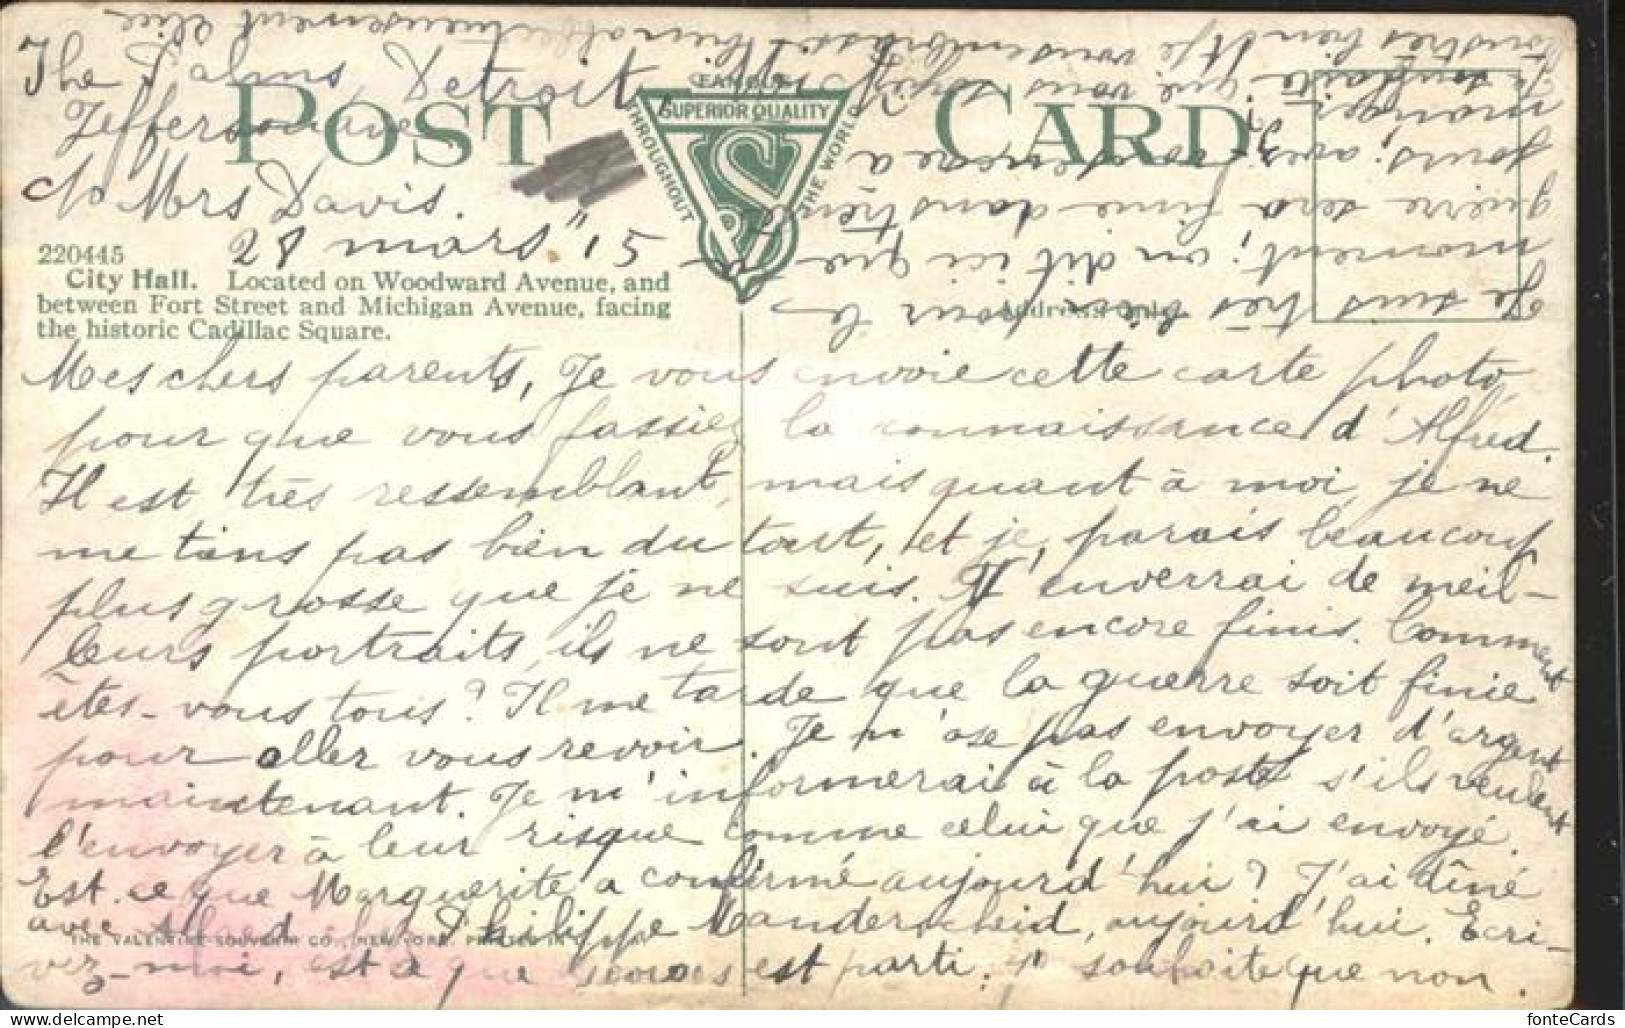 The Palms Detroit,
Jefferson ave
c/o Mrs Davis.
28 mars "15
POST CARD
FAMOUS
SUPERIOR QUALITY
THROUGHOUT
THE WORLD
220445
City Hall. Located on Woodward Avenue, and
between Fort Street and Michigan Avenue, facing
the historic Cadillac Square.
Address Only.
Mes chers parents, Je vous envoie cette carte photo,
pour que vous fassiez la connaissance d'Alfred.
Il est très ressemblant, mais quant à moi, je ne
me tiens pas bien du tout, et je parais beaucoup
plus grosse que je ne suis. J'enverrai de meil-
leurs portraits, ils ne sont pas encore finis. Comment
êtes-vous tous? Il me tarde que la guerre soit finie
pour aller vous revoir. Je n'ose pas envoyer d'argent
maintenant. Je m'informerai à la poste s'ils veulent
l'envoyer à leur risque comme celui que j'ai envoyé.
Est-ce que Marguerite a confirmé aujourd'hui? J'ai dîné
avec Alfred chez Philippe Manderscheid, aujourd'hui. Ecri-
vez-moi, est-ce que est parti; j' souhaite que non.
THE VALENTINE-SOUVENIR CO., NEW YORK. PRINTED IN
Je suis très bien pour le
moment; on dit ici que la
guerre sera finie dans trente
jours, avec
manger. Si
Je souhaite que vous soyez
tous très bien. Et je vous embrasse bien affectueusement
fonteCards